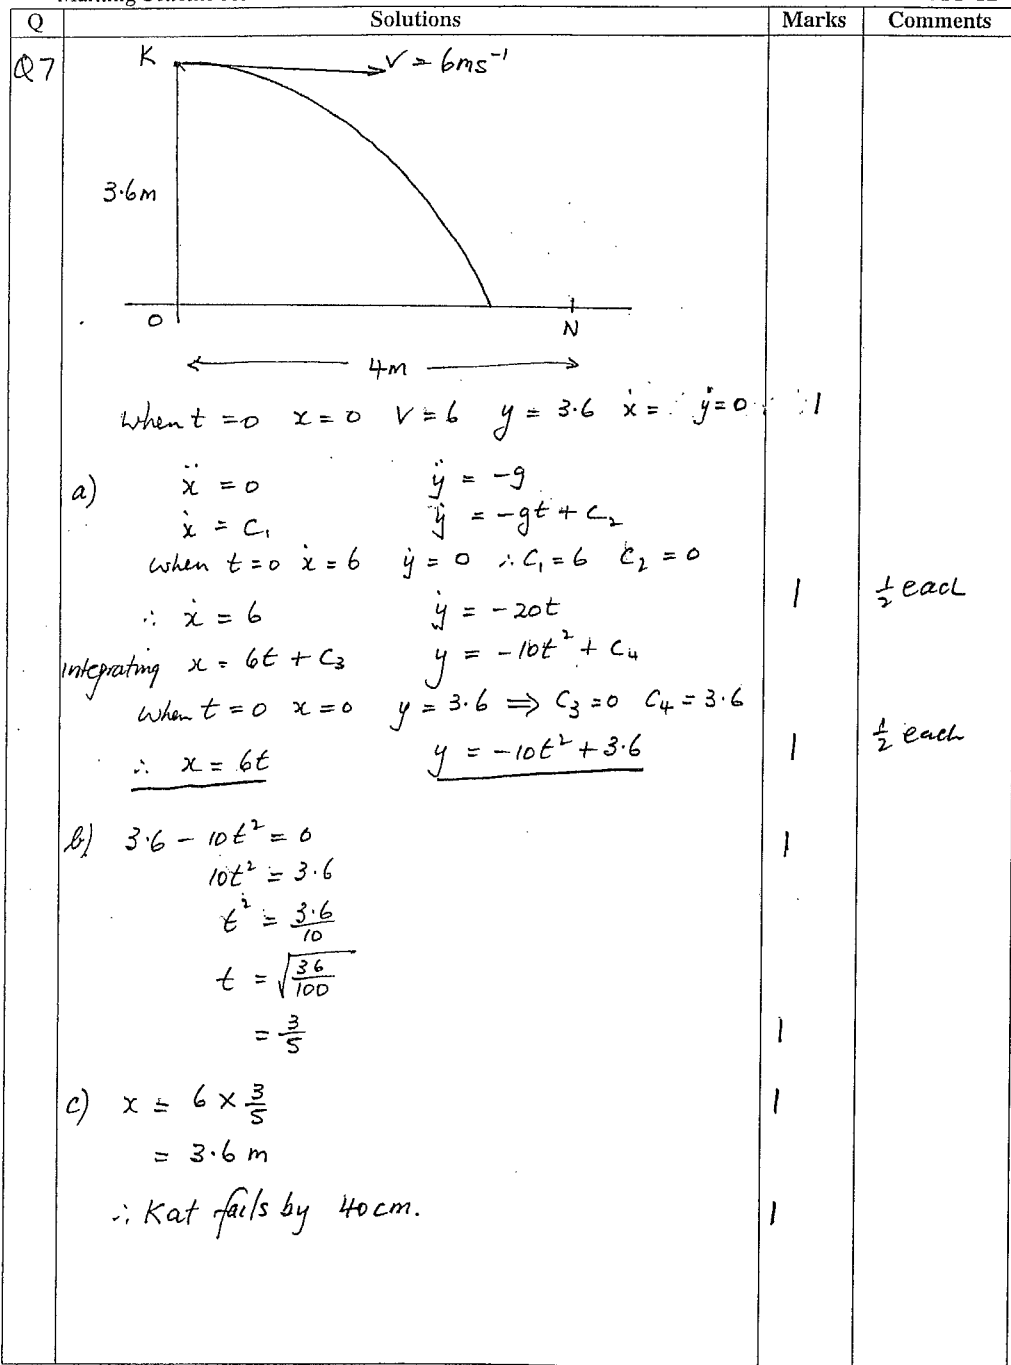 Q Solutions Marks Comments
Q7 K V = 6ms⁻¹
3.6m
O N
4m
When t = 0 x = 0 V = 6 y = 3.6 ẋ = ẏ = 0 1
a) ẍ = 0 ÿ = -g
ẋ = C₁ ẏ = -gt + C₂
when t = 0 ẋ = 6 ẏ = 0 ∴ C₁ = 6 C₂ = 0
∴ ẋ = 6 ẏ = -20t 1 ½ each
integrating x = 6t + C₃ y = -10t² + C₄
When t = 0 x = 0 y = 3.6 ⇒ C₃ = 0 C₄ = 3.6
∴ x = 6t y = -10t² + 3.6 1 ½ each
b) 3.6 - 10t² = 0 1
10t² = 3.6
t² = 3.6/10
t = √(36/100)
= 3/5 1
c) x = 6 × 3/5 1
= 3.6 m
∴ Kat fails by 40cm. 1